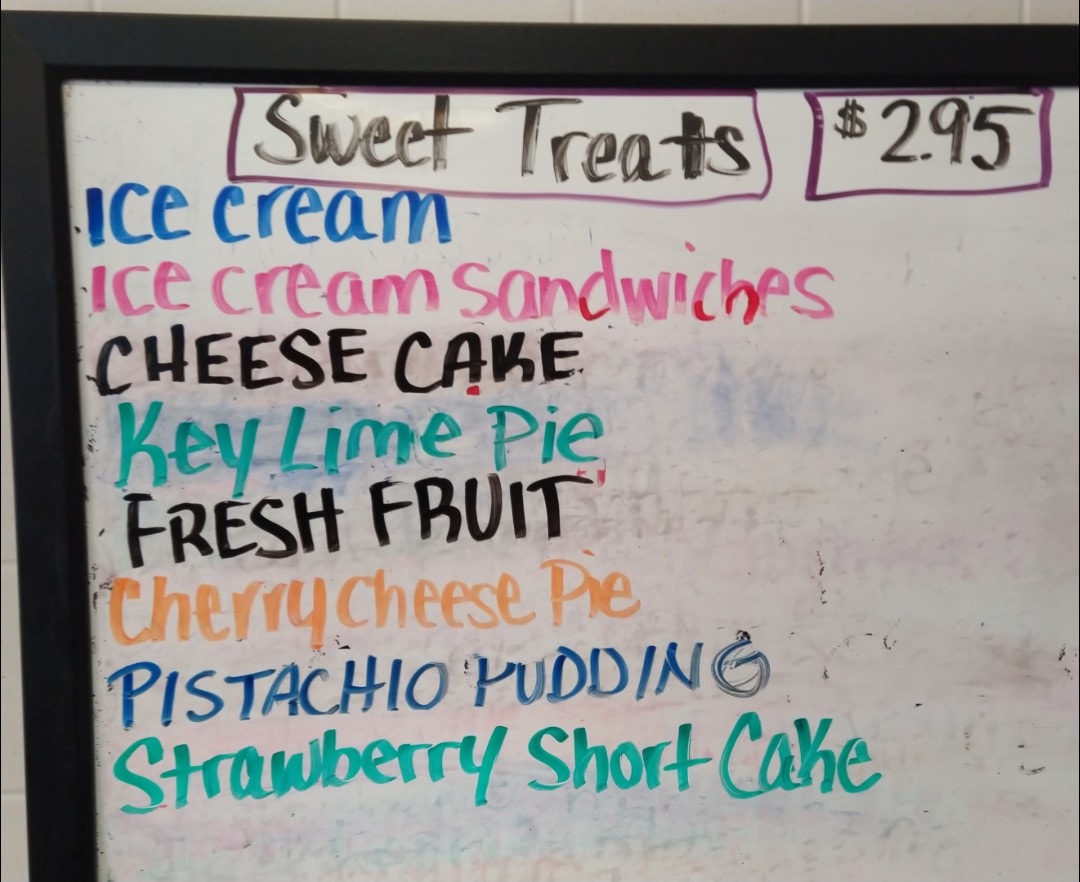 Sweet Treats $2.95
Ice cream
Ice cream Sandwiches
CHEESE CAKE
Key Lime Pie
FRESH FRUIT
Cherry Cheese Pie
PISTACHIO PUDDING
Strawberry Short Cake